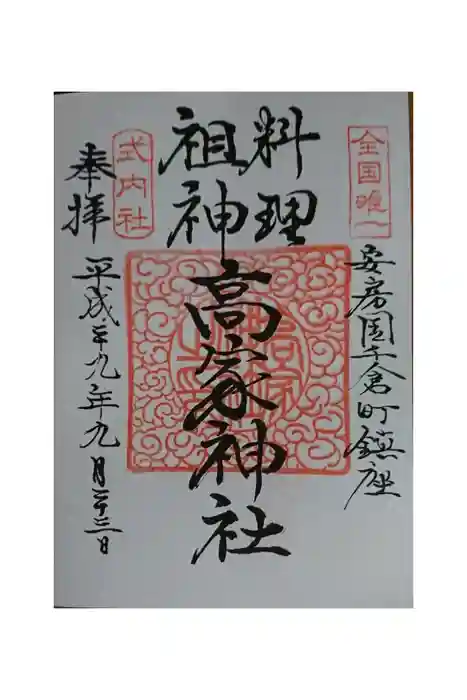 全国唯一
安房國千倉町鎮座
料理
祖神
高家神社
式内社
奉拝
平成二十九年九月二十三日